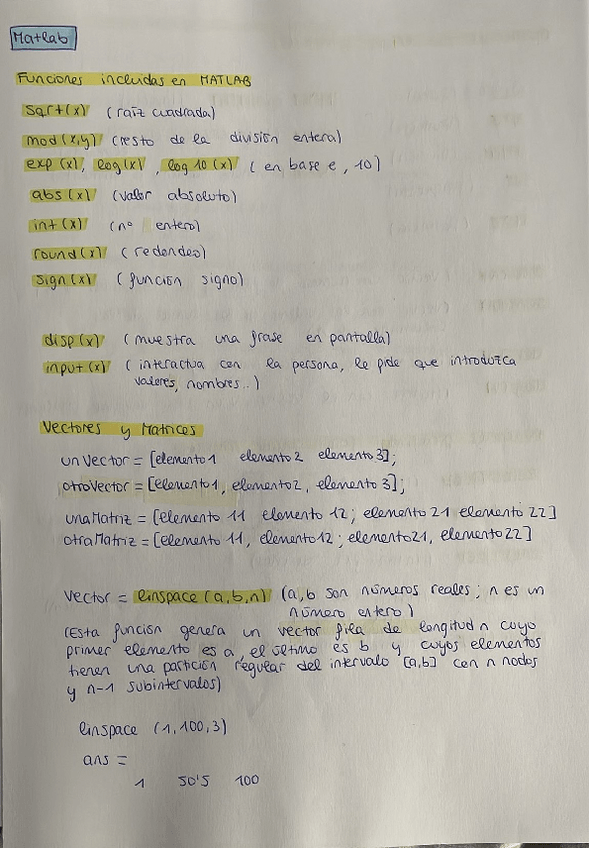 Matlab
Funciones incluidas en MATLAB
sqrt(x) (raíz cuadrada)
mod(x,y) (resto de la división entera)
exp(x), log(x), log10(x) (en base e, 10)
abs(x) (valor absoluto)
int(x) (nº entero)
round(x) (redondeo)
sign(x) (función signo)
disp(x) (muestra una frase en pantalla)
input(x) (interactua con la persona, le pide que introduzca
valores, nombres..)
Vectores y Matrices
unVector = [elemento1 elemento2 elemento3];
otroVector = [elemento1, elemento2, elemento3];
unaMatriz = [elemento 11 elemento 12; elemento 21 elemento 22]
otraMatriz = [elemento 11, elemento12; elemento21, elemento22]
Vector = linspace(a,b,n) (a,b son números reales; n es un
número entero)
(Esta función genera un vector fila de longitud n cuyo
primer elemento es a, el último es b y cuyos elementos
tienen una partición regular del intervalo [a,b] con n nodos
y n-1 subintervalos)
linspace (1,100,3)
ans =
1 50'5 100